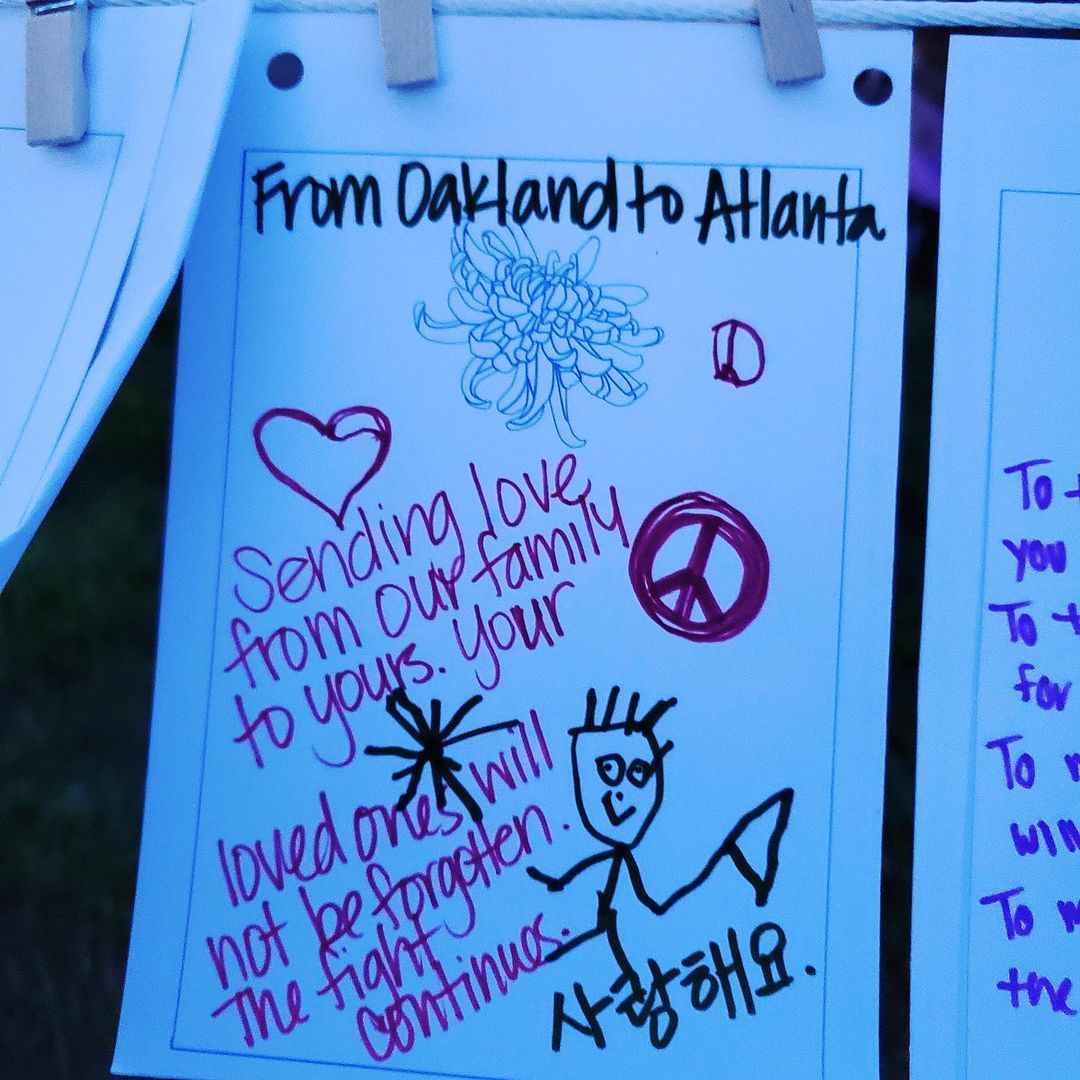 From Oakland to Atlanta
Sending love
from our family
to yours. Your
loved ones will
not be forgotten.
The fight
continues.
사랑해요.
To
you
To
for
To
To
the